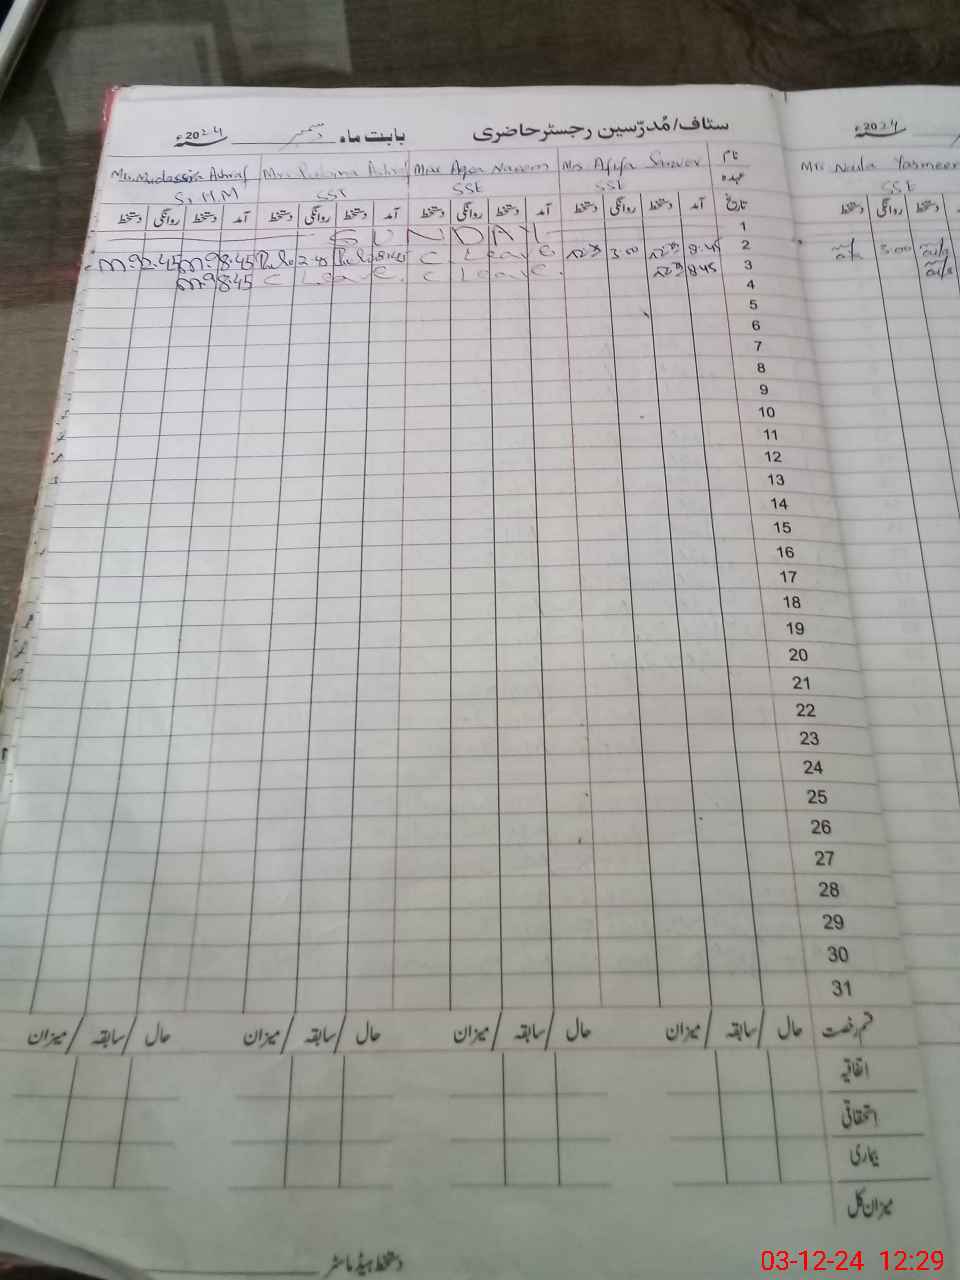 سٹاف/مُدرّسین رجسٹر حاضری بابت ماہ دسمبر 2024ء
2024ء
نام Mrs Afifa Sarwar Miss Aqsa Naeem Mrs Ashraf Mrs Mudassira Ashraf
Mrs Naila Yasmeen
عہدہ SSE SSE SST S, H, M
SSE
تاریخ آمد دستخط روانگی دستخط آمد دستخط روانگی دستخط آمد دستخط روانگی دستخط آمد دستخط روانگی دستخط
دستخط روانگی دستخط
1 SUNDAY
2 8:45 3:00 C Leave 8:45 2:45 8:45 2:45
3:00
3 8:45 C Leave C Leave 8:45
4
5
6
7
8
9
10
11
12
13
14
15
16
17
18
19
20
21
22
23
24
25
26
27
28
29
30
31
قسم رخصت حال / سابقہ / میزان حال / سابقہ / میزان حال / سابقہ / میزان حال / سابقہ / میزان
اتفاقیہ
استحقاقی
بیماری
میزان کل
دستخط ہیڈ ماسٹر
03-12-24 12:29